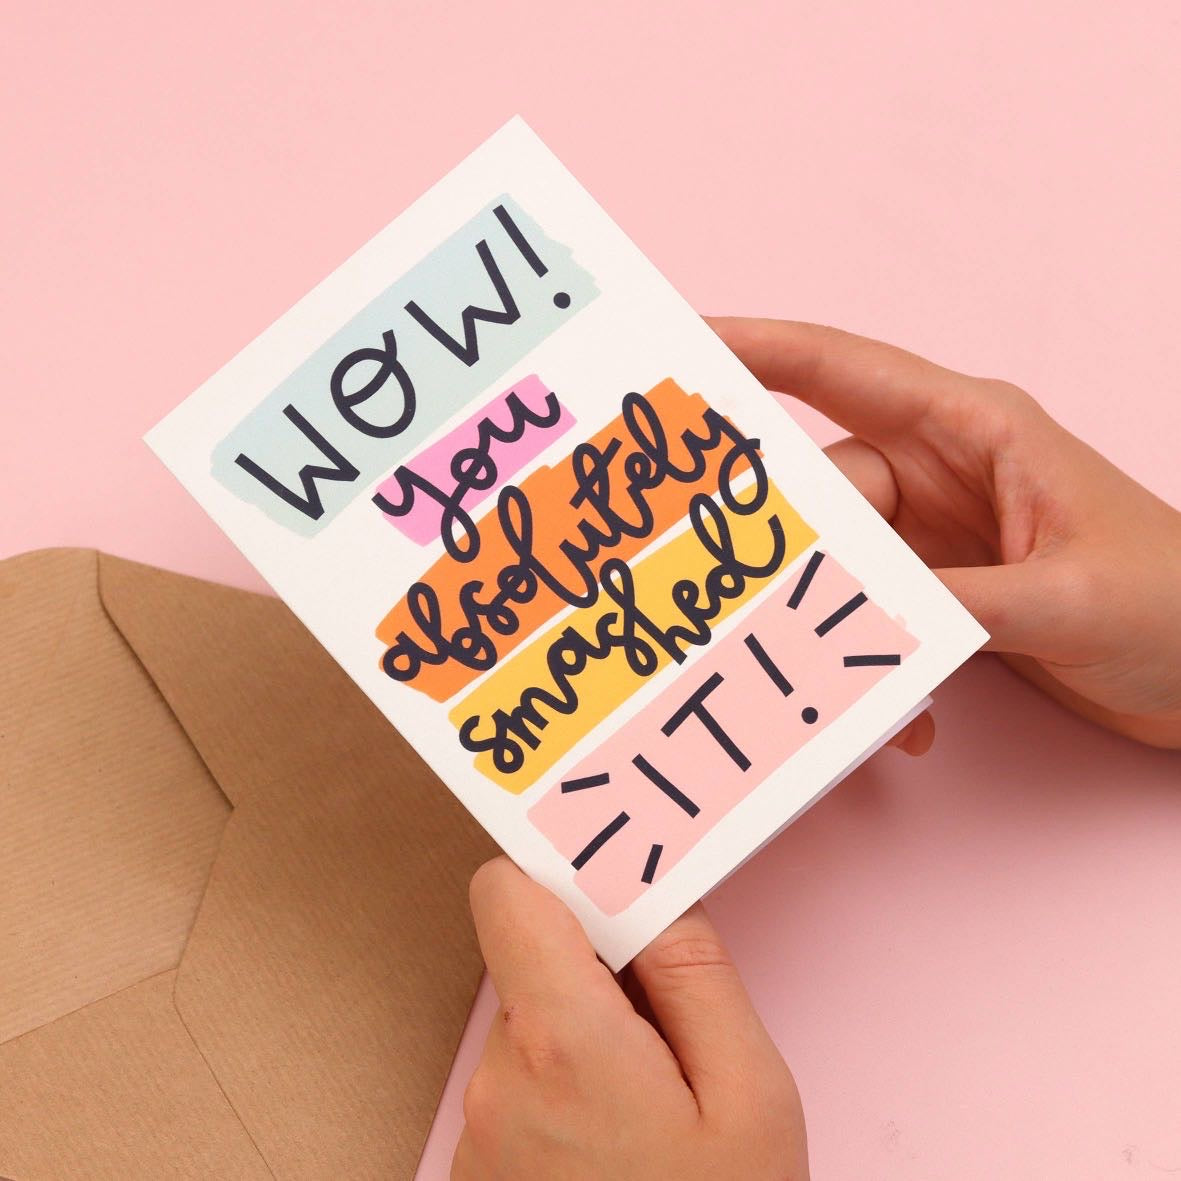 WOW!
you
absolutely
smashed
IT!